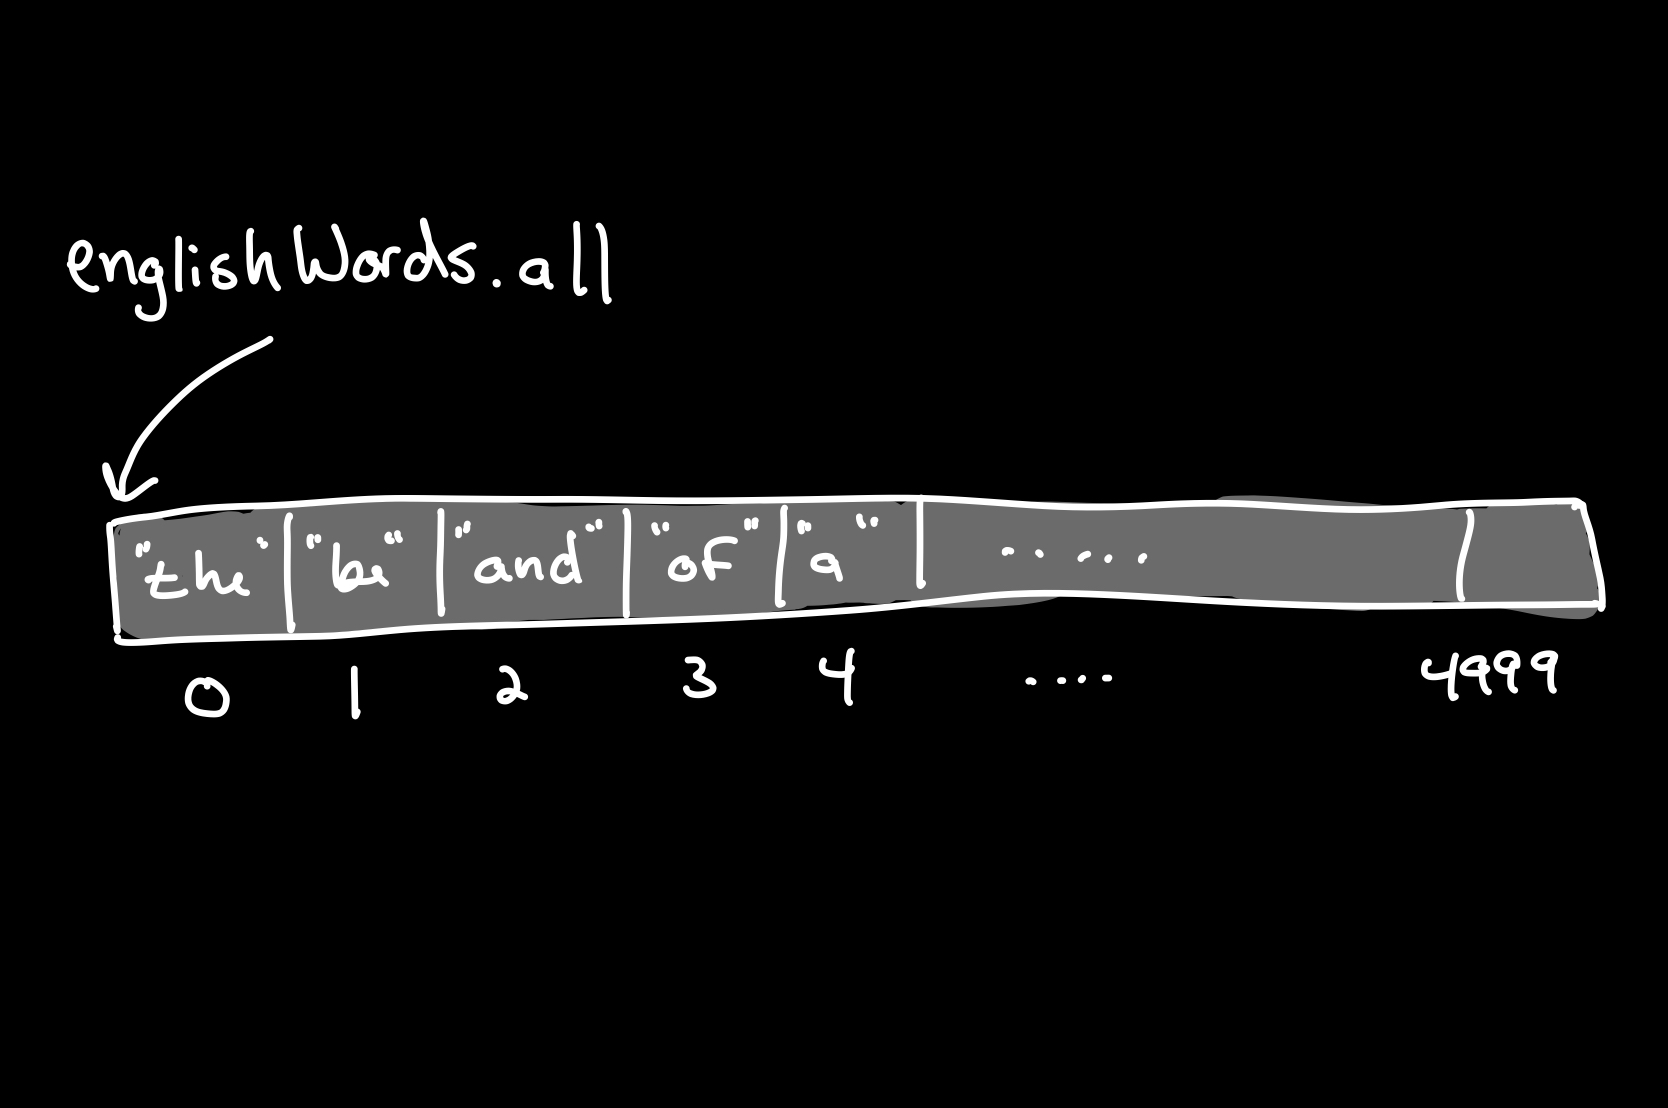 englishWords.all
"the" "be" "and" "of" "a" .....
0 1 2 3 4 .... 4999